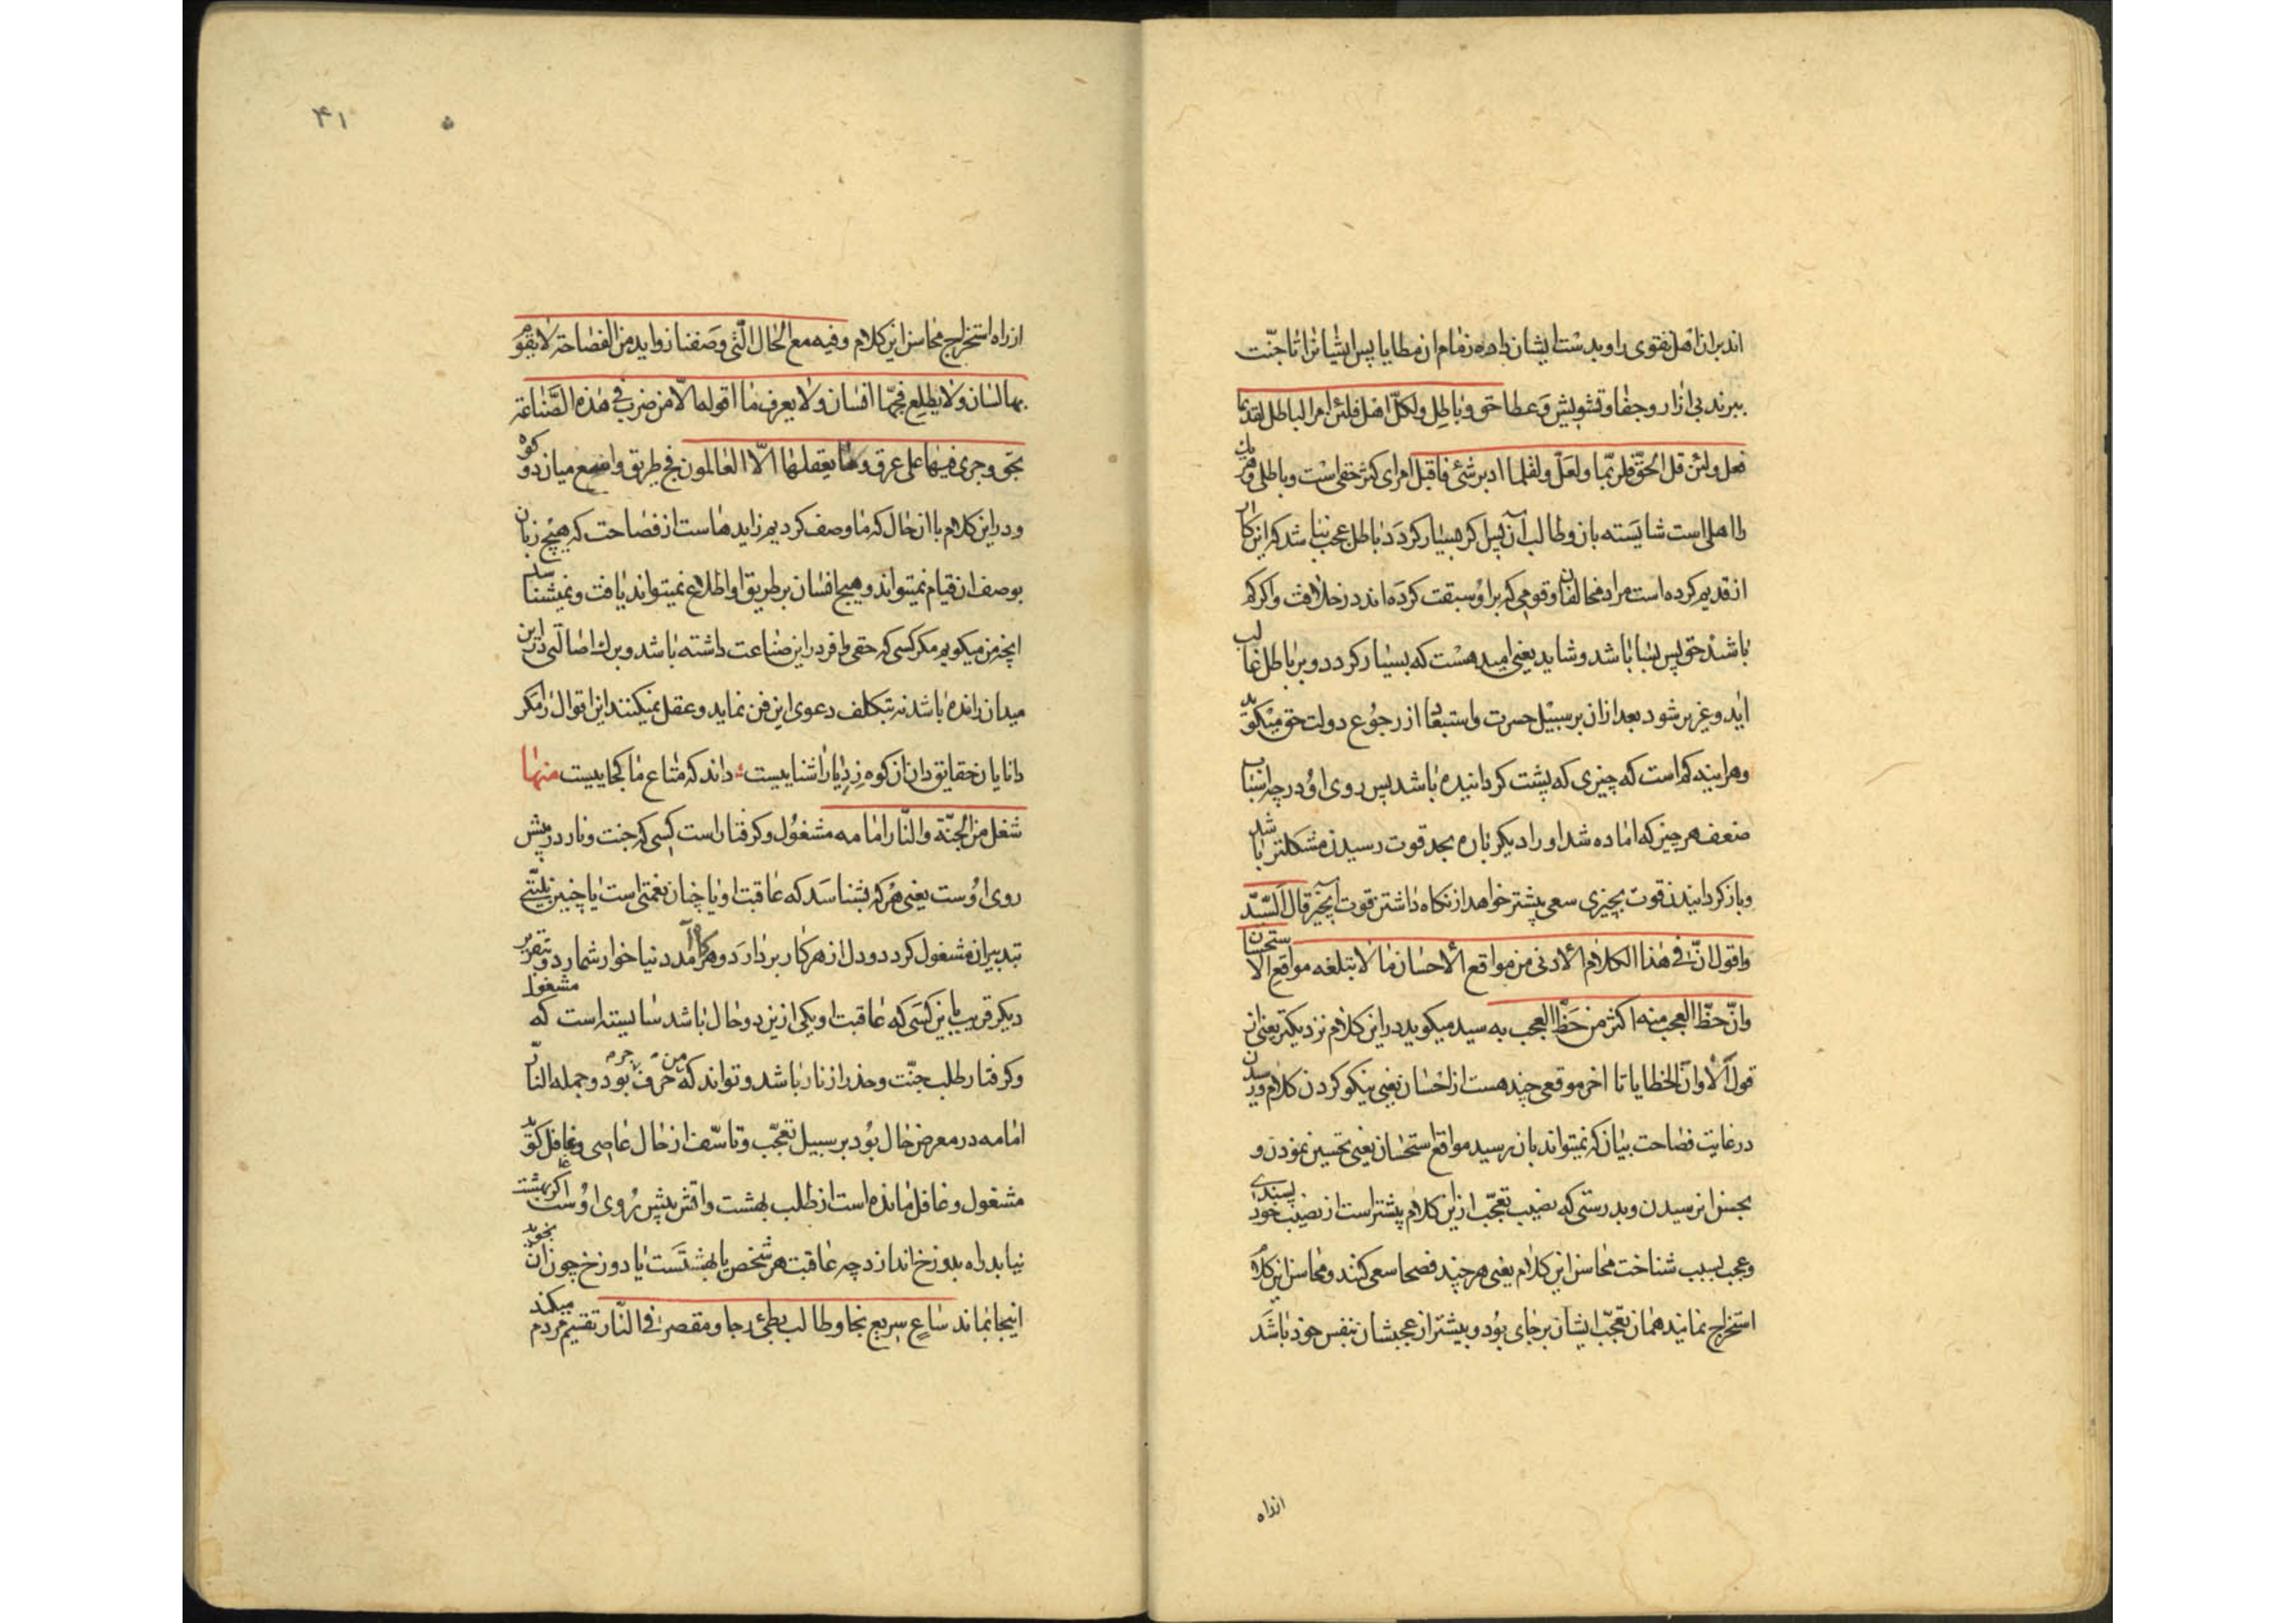 اند بران اهل تقوی را و بدست ایشان داده زمام ان مطایا پس ایشانرا تا جنّت
ببرند بی ازار و جفا و تشویش و عطا حق و باطل و لکلّ اهل فلئن امر الباطل لقدیما
فعل و لئن قل الحقّ فلربّما و لعلّ و لقلما ادبر شئ فاقبل امرای کثر حقی است و باطلی و هر یک
را اهلی است شایسته بان و طالب آن پس اگر بسیار کردد باطل عجب نباشد که این کار
از قدیم کرده است مراد مخالفان و قومی که بر او سبقت کرده اند در خلافت و اکر کم
باشد حق پس بسا باشد و شاید یعنی امید هست که بسیار کردد و بر باطل غالب
اید و عزیز شود بعد ازان بر سبیل حسرت و استبعاد از رجوع دولت حق میکوید
و هراینه کم است که چیزی که پشت کردانیده باشد پس روی اورد چه اسباب
ضعف هر چیز که اماده شد او را دیکر باره بحد قوت رسیدن مشکلتر باشد
و باز کردانیدن قوت بچیزی سعی بیشتر خواهد از نکاه داشتن قوت آنچیز قال السّیّد
و اقول انّ فی هذا الکلام الادنی من مواقع الاحسان ما لا تبلغه مواقع الاستحسان
و انّ حظّ العجب منه اکثر من حظّ العجب به سید میکوید در این کلام نزدیکتر یعنی از
قول الا و ان الخطایا تا اخر موقعی چند هست از احسان یعنی نیکو کردن کلام و رسیدن
در غایت فصاحت بیان که نمیتواند بان رسید مواقع استحسان یعنی تحسین نمودن و
بحسن ان رسیدن و بدرستی که نصیب تعجّب ازین کلام بیشتر است از نصیب خود پسندی
و عجب بسبب شناخت محاسن این کلام یعنی هر چند فصحا سعی کنند و محاسن این کلام
استخراج نمایند همان تعجّب ایشان بر جای بود و بیشتر از عجبشان بنفس خود باشد
ازراه
۴۱
ازراه استخراج محاسن این کلام و فیه مع الحال الّتی وصفنا زواید من الفصاحة لا یقوم
بها لسان و لا یطلع فجّها انسان و لا یعرف ما اقوله الّا من ضرب فی هذه الصّناعة
بحق و جری فیها علی عرق و ما یعقلها الّا العالمون فج طریق واسع میان دو کوه
و در این کلام با ان حال که ما وصف کردیم زایدهاست از فصاحت که هیچ زبان
بوصف ان قیام نمیتواند و هیچ انسان بر طریق او اطلاع نمیتواند یافت و نمیشناسد
انچه من میکویم مکر کسی که حقی وافر در این صناعت داشته باشد و برک اصالتی در این
میدان رانده باشد نه بتکلف دعوی این فن نماید و عقل نمیکنند این اقوال را مکر
دانایان حقایق دان ان کوه نزدیا را شناییست داند که متاع ما کجاییست منها
شغل من الجنّة و النّار امامه مشغول و کرفتار است کسی که جنت و نار در پیش
روی اوست یعنی هر که بشناسد که عاقبت او یا چنان نعمتی است یا چنین بلیّتی
بتدبیر ان مشغول کردد و دل از هر کار بردارد و هر کام آمد دنیا خوار شمارد و بتقریر
دیکر قریب باین کسی که عاقبت او یکی ازین دو حال باشد شایسته است که مشغول
و کرفتار طلب جنّت و حذر از نار باشد و تواند که من حرف جر بود و جمله النار
امامه در معرض حال بود بر سبیل تعجّب و تاسّف از حال عاصی و غافل کوید
مشغول و غافل مانده است از طلب بهشت و اتش پیش روی اوست اکر بهشت
نیابد راه بدوزخ اندازد چه عاقبت هر شخص یا بهشتست یا دوزخ چون ان بجوید
اینجا نماند ساع سریع نجا و طالب بطئ رجا و مقصر فی النّار تقسیم مردم میکند